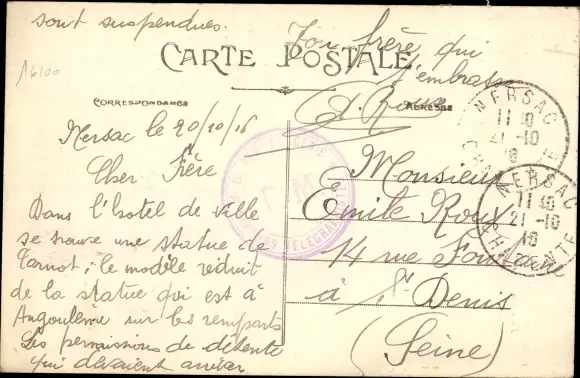 sont suspendues.
Ton frère qui
t'embrasse
CARTE POSTALE
16100
CORRESPONDANCE
ADRESSE
Nersac le 20/10/16
Cher Frère
Dans l'hotel de ville
se trouve une statue de
Carnot, le modèle réduit
de la statue qui est à
Angoulème sur les remparts
Les permissions de détente
qui devaient arriver
Monsieur
Emile Roux
14 rue Fontaine
à St Denis
(Seine)
NERSAC
11 10
21-10
16
NERSAC
11 10
21-10
16
CHARENTE
F M